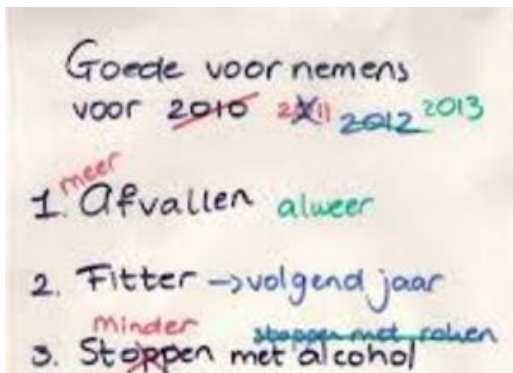 Goede voornemens
voor 2010 2011 2012 2013
meer
1. Afvallen alweer
2. Fitter → volgend jaar
minder stoppen met roken
3. Stoppen met alcohol